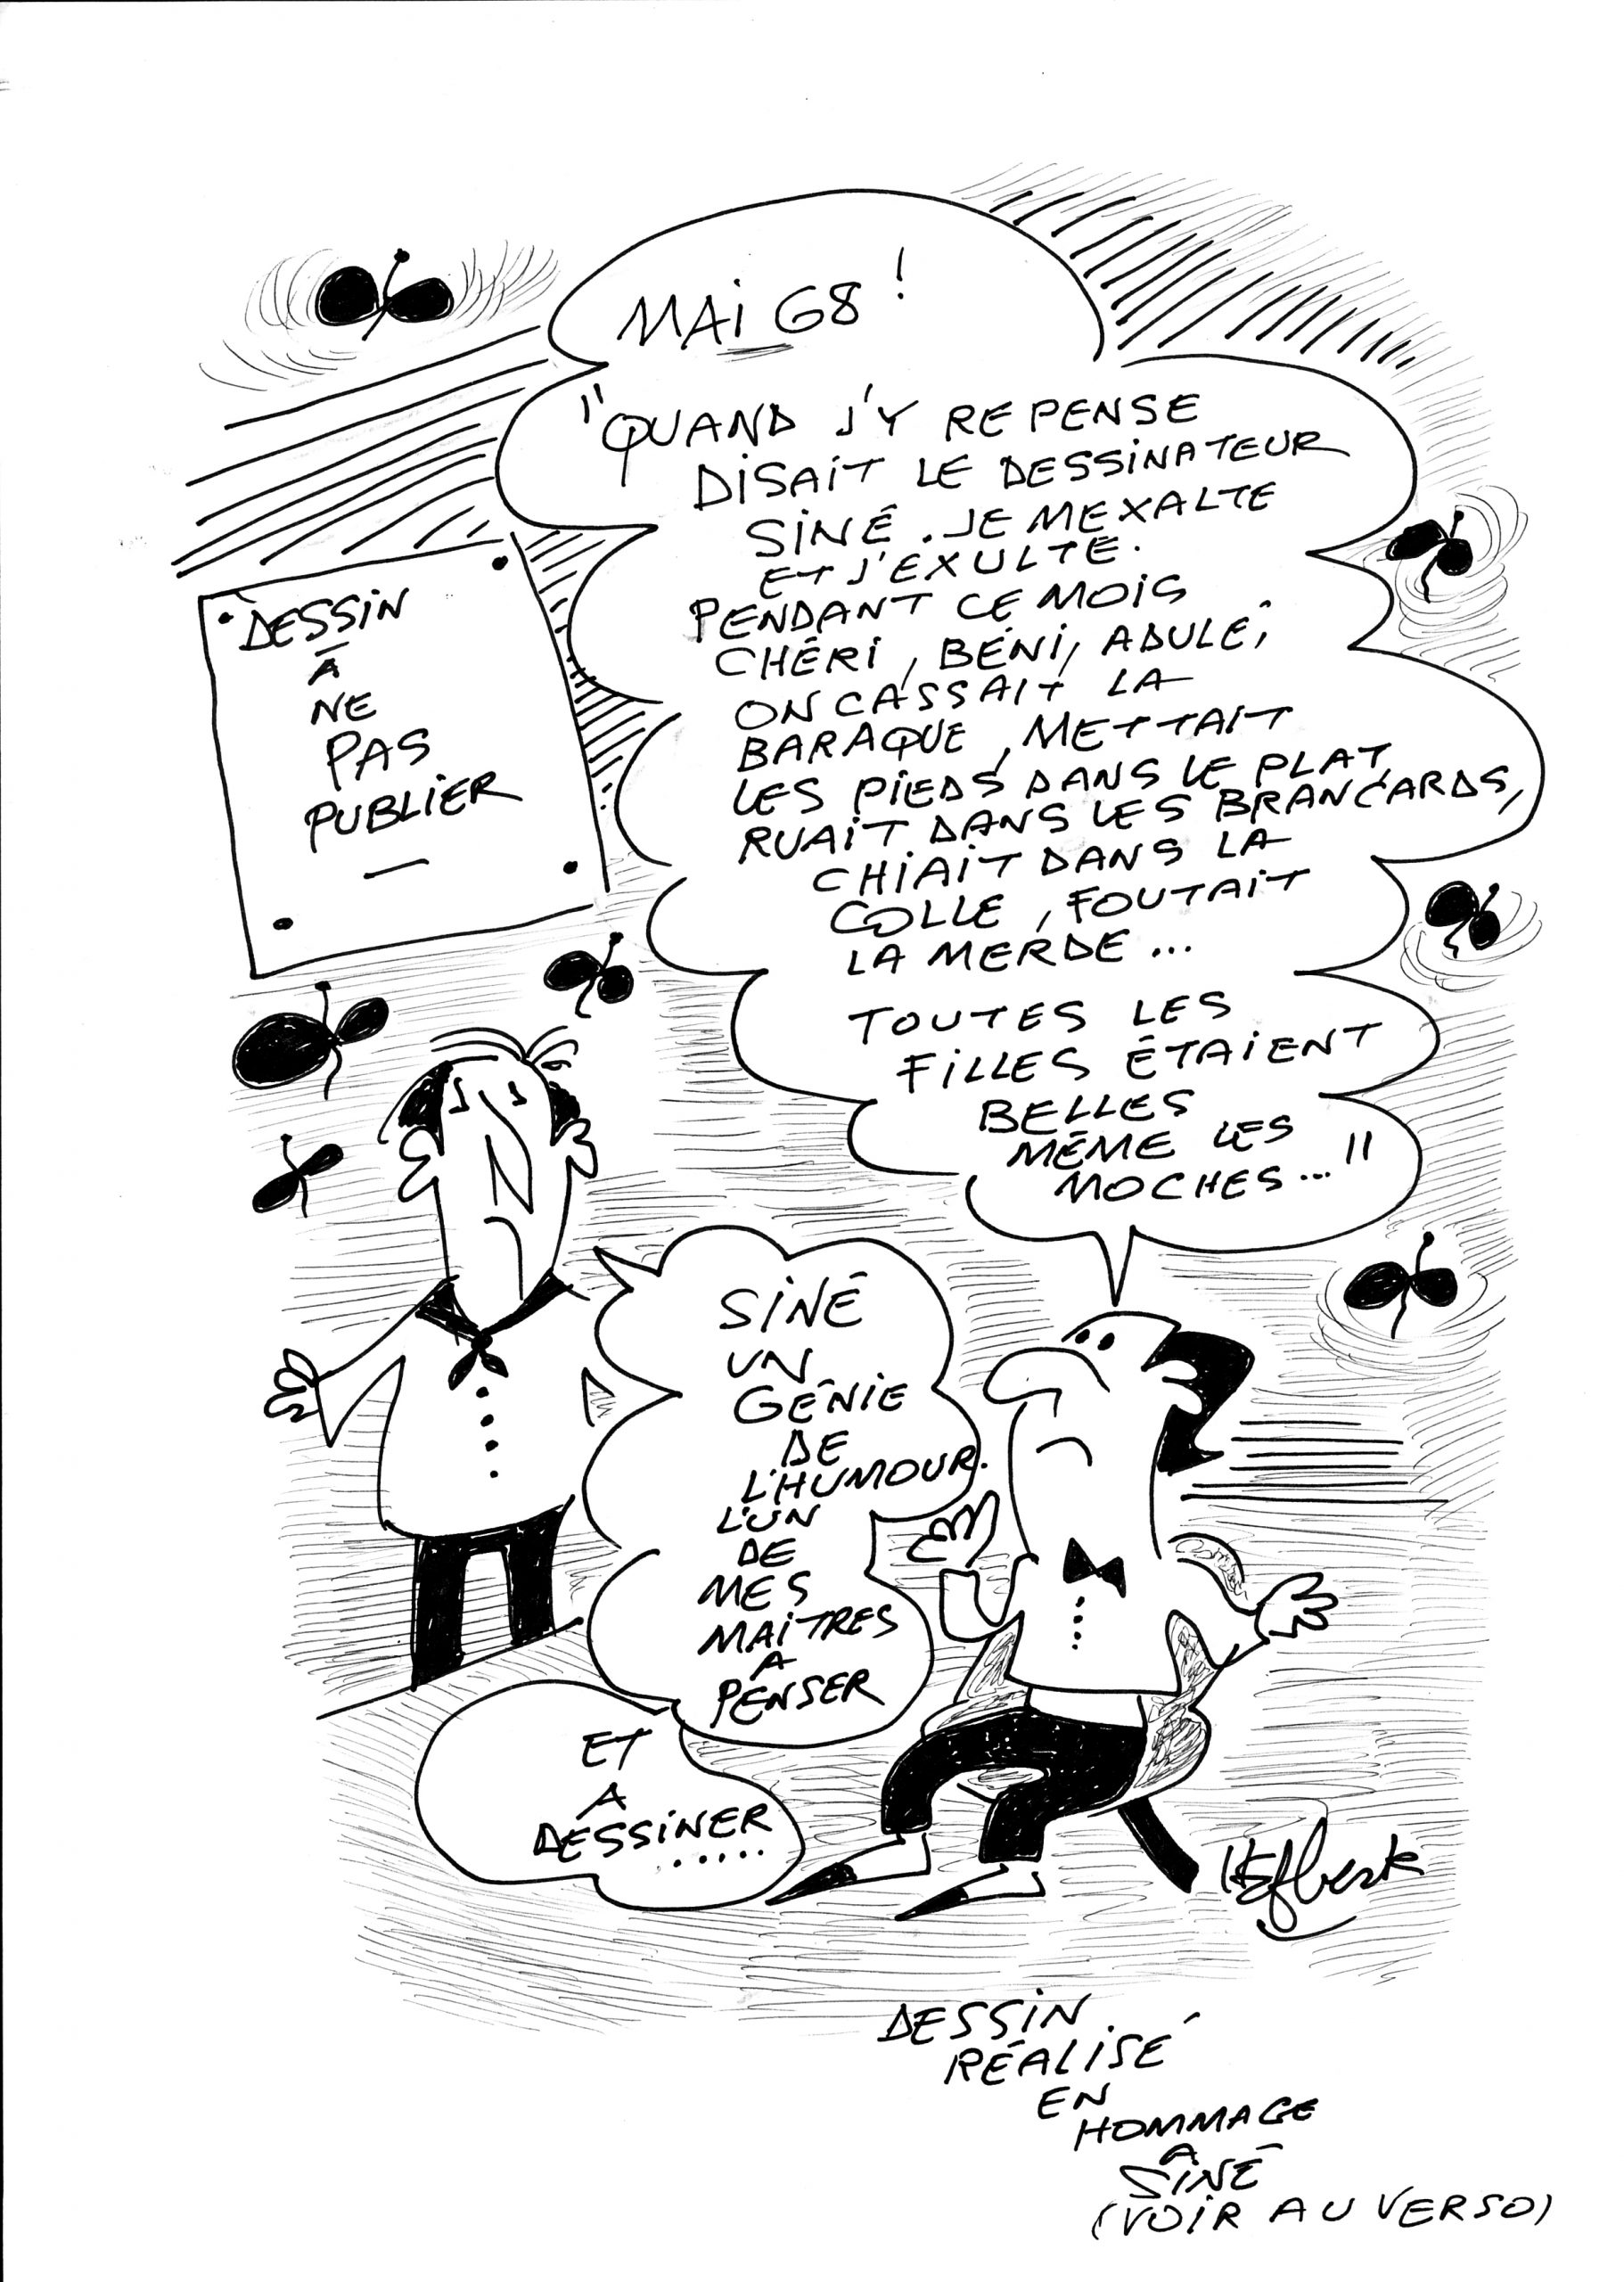 MAI 68 !
"QUAND J'Y REPENSE
DISAIT LE DESSINATEUR
SINÉ. JE MEXALTE
ET J'EXULTE.
PENDANT CE MOIS
CHÉRI, BÉNI, ADULÉ,
ON CASSAIT LA
BARAQUE, METTAIT
LES PIEDS DANS LE PLAT,
RUAIT DANS LES BRANCARDS,
CHIAIT DANS LA
COLLE, FOUTAIT
LA MERDE...
TOUTES LES
FILLES ÉTAIENT
BELLES
MÊME LES
MOCHES..."
DESSIN
À
NE
PAS
PUBLIER
SINÉ
UN
GÉNIE
DE
L'HUMOUR.
L'UN
DE
MES
MAITRES
A
PENSER
ET
A
DESSINER
.....
DESSIN
RÉALISÉ
EN
HOMMAGE
A
SINÉ
(VOIR AU VERSO)